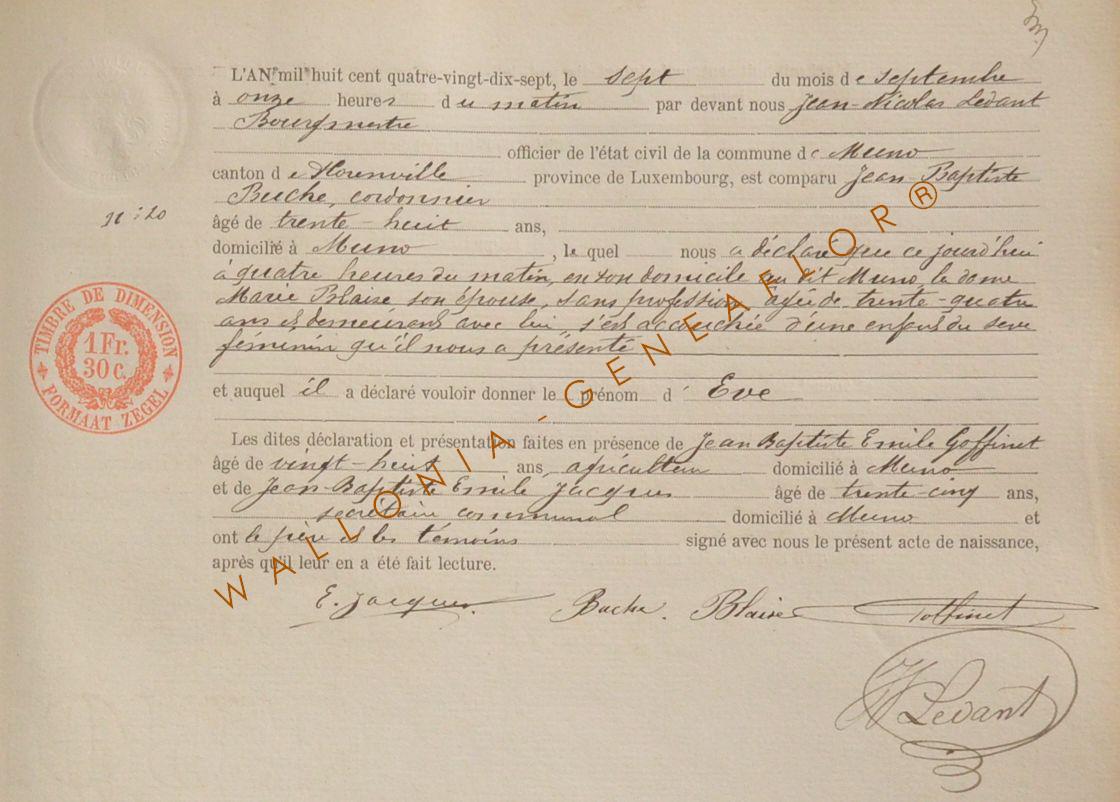 L'AN mil huit cent quatre-vingt-dix-sept, le sept du mois de septembre
à onze heures du matin par devant nous Jean-Nicolas Ledant
Bourgmestre
officier de l'état civil de la commune de Muno
canton de Florenville province de Luxembourg, est comparu Jean-Baptiste
Buche, cordonnier
âgé de trente-huit ans,
domicilié à Muno, lequel nous a déclaré que ce jourd'hui
à quatre heures du matin, en son domicile au dit Muno, la dame
Marie Blaise son épouse, sans profession âgée de trente-quatre
ans et demeurant avec lui, s'est accouchée d'une enfant du sexe
feminin qu'il nous a présenté
et auquel il a déclaré vouloir donner le prénom d' Eve
Les dites déclaration et présentation faites en présence de Jean Baptiste Emile Goffinet
âgé de vingt-huit ans, agriculteur domicilié à Muno
et de Jean-Baptiste Emile Jacques âgé de trente-cinq ans,
secrétaire communal domicilié à Muno et
ont le père et les témoins signé avec nous le présent acte de naissance,
après qu'il leur en a été fait lecture.
E. Jacques. Buche. Blaise Goffinet
Ledant
TIMBRE DE DIMENSION
1 Fr.
30 c.
FORMAAT ZEGEL
WALLONIA-GENEAFLOR®